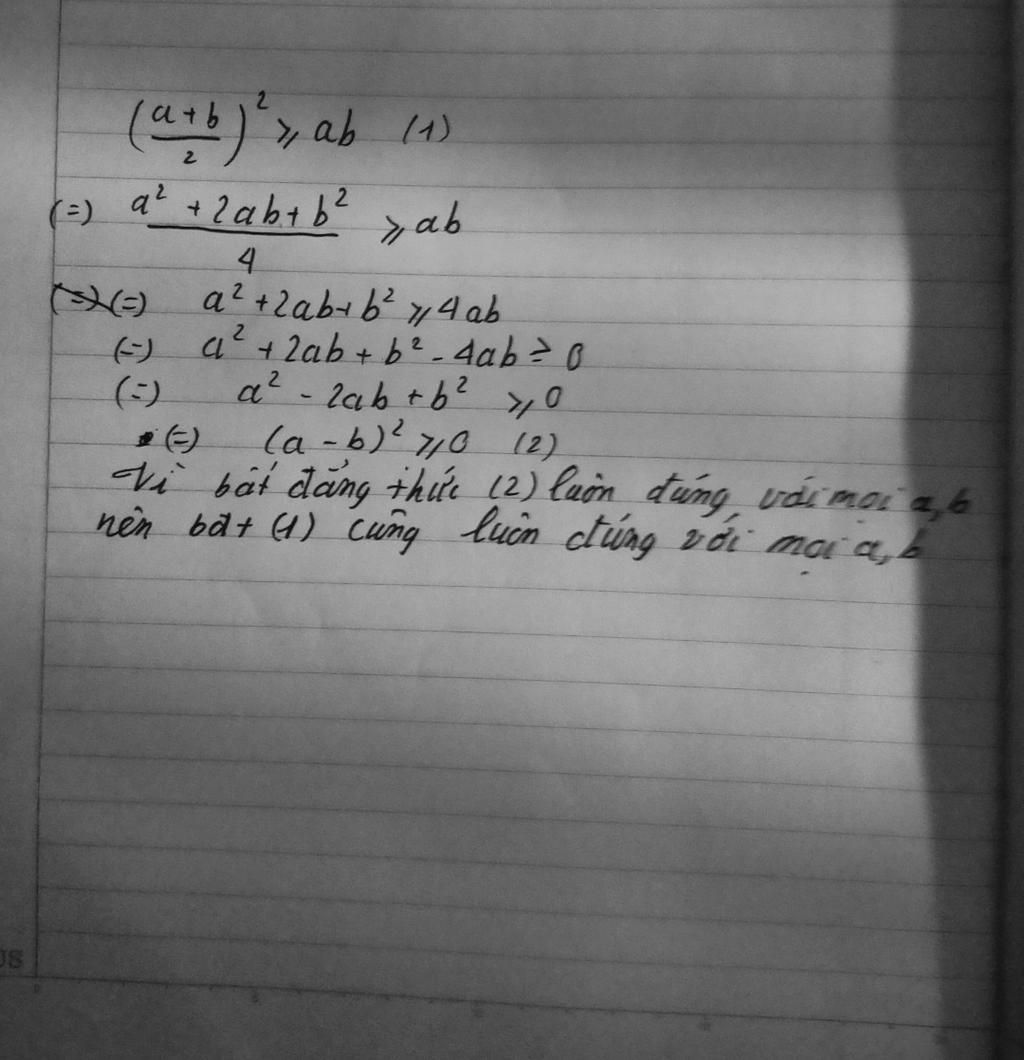 (a+b/2)² ⩾ ab (1)
(=) a² + 2ab + b² / 4 ⩾ ab
(=) a² + 2ab + b² ⩾ 4ab
(=) a² + 2ab + b² - 4ab ≥ 0
(=) a² - 2ab + b² ⩾ 0
(=) (a - b)² ⩾ 0 (2)
Vì bất đẳng thức (2) luôn đúng với mọi a, b
nên bđt (1) cũng luôn đúng với mọi a, b